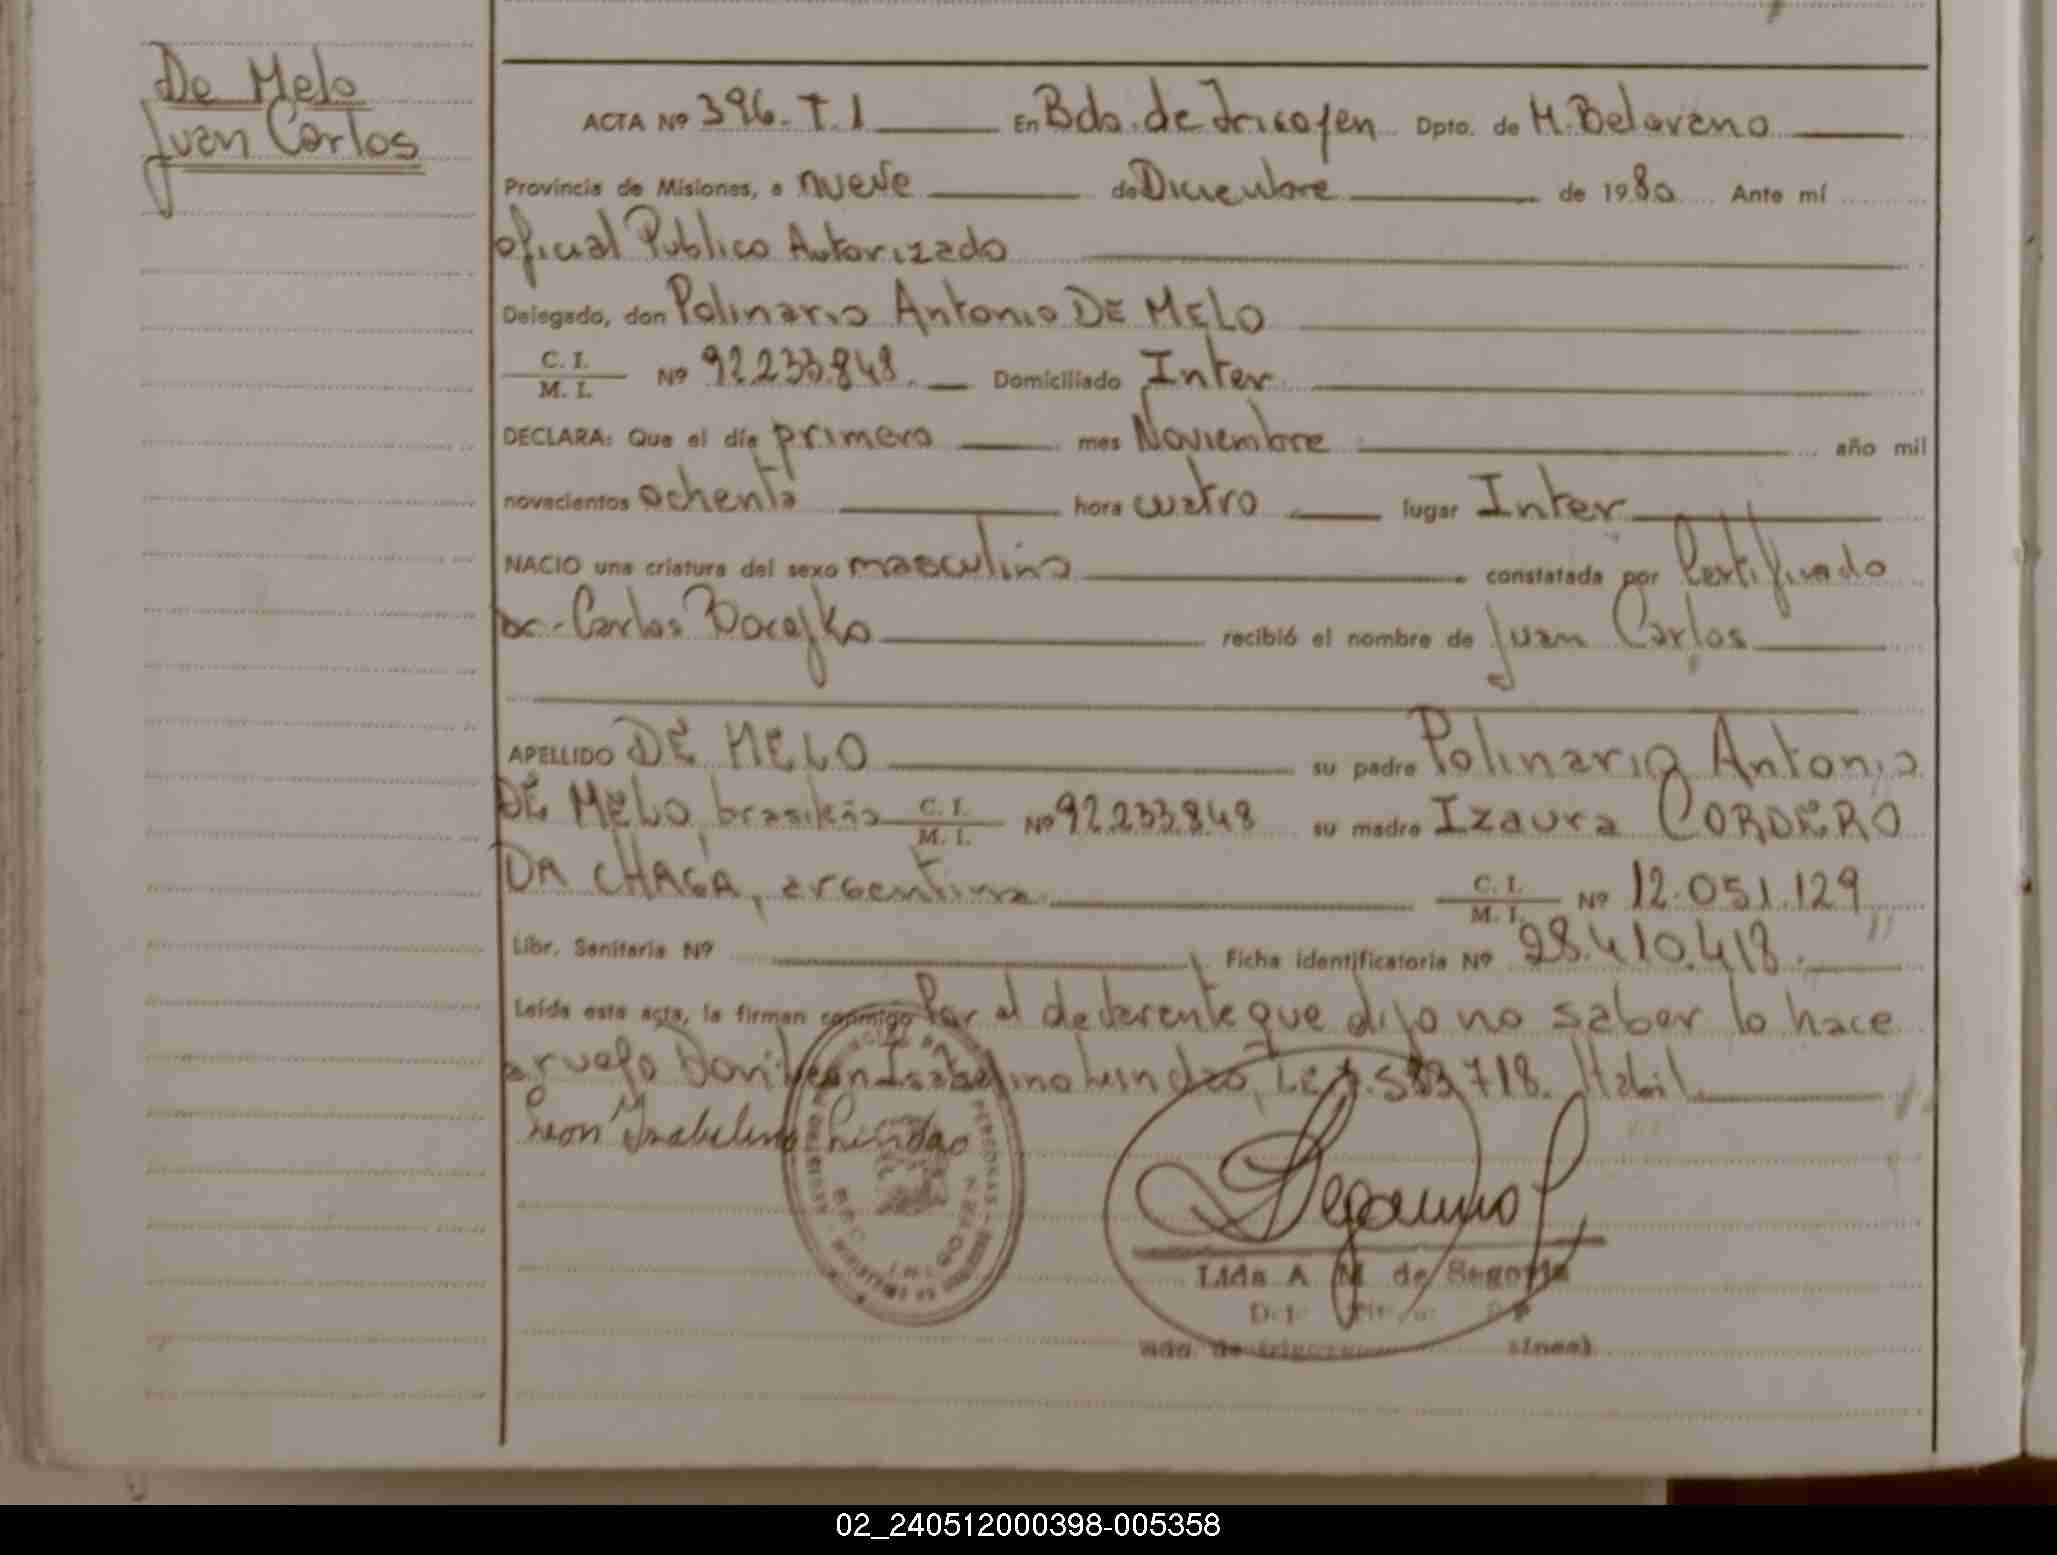 De Melo
Juan Carlos
ACTA Nº 396. T. I En Bdo. de Irigoyen Dpto. de M. Belgrano
Provincia de Misiones, a nueve de Diciembre de 1980 Ante mí
oficial Publico Autorizado
Delegado, don Polinario Antonio DE MELO
C. I.
M. I. Nº 92.233.848. Domiciliado Inter
DECLARA: Que el día primero mes Noviembre año mil
novecientos ochenta hora cuatro lugar Inter
NACIO una criatura del sexo masculino constatada por Certificado
Dr. Carlos recibió el nombre de Juan Carlos
APELLIDO DE MELO su padre Polinario Antonio
DE MELO, brasileño C. I. M. I. Nº 92.233.848 su madre Izaura CORDERO
DA CHAGA, argentina C. I. M. I. Nº 12.051.129
Libr. Sanitaria Nº Ficha identificatoria Nº 28.410.418.
Leída esta acta, la firman conmigo Por el declarente que dijo no saber lo hace
a ruego Don Leon Isabelino L.E. 718. Habil
Leon Isabelino
Lida A M de Segovia
02_240512000398-005358